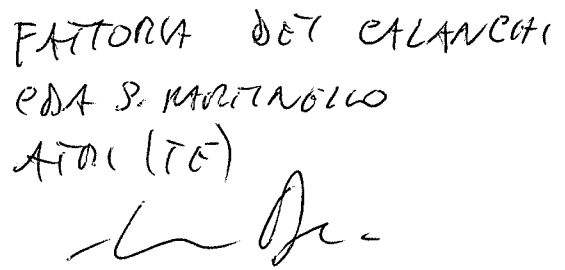 FATTORIA DEI CALANCHI
CDA S. MARTINELLO
ATRI (TE)